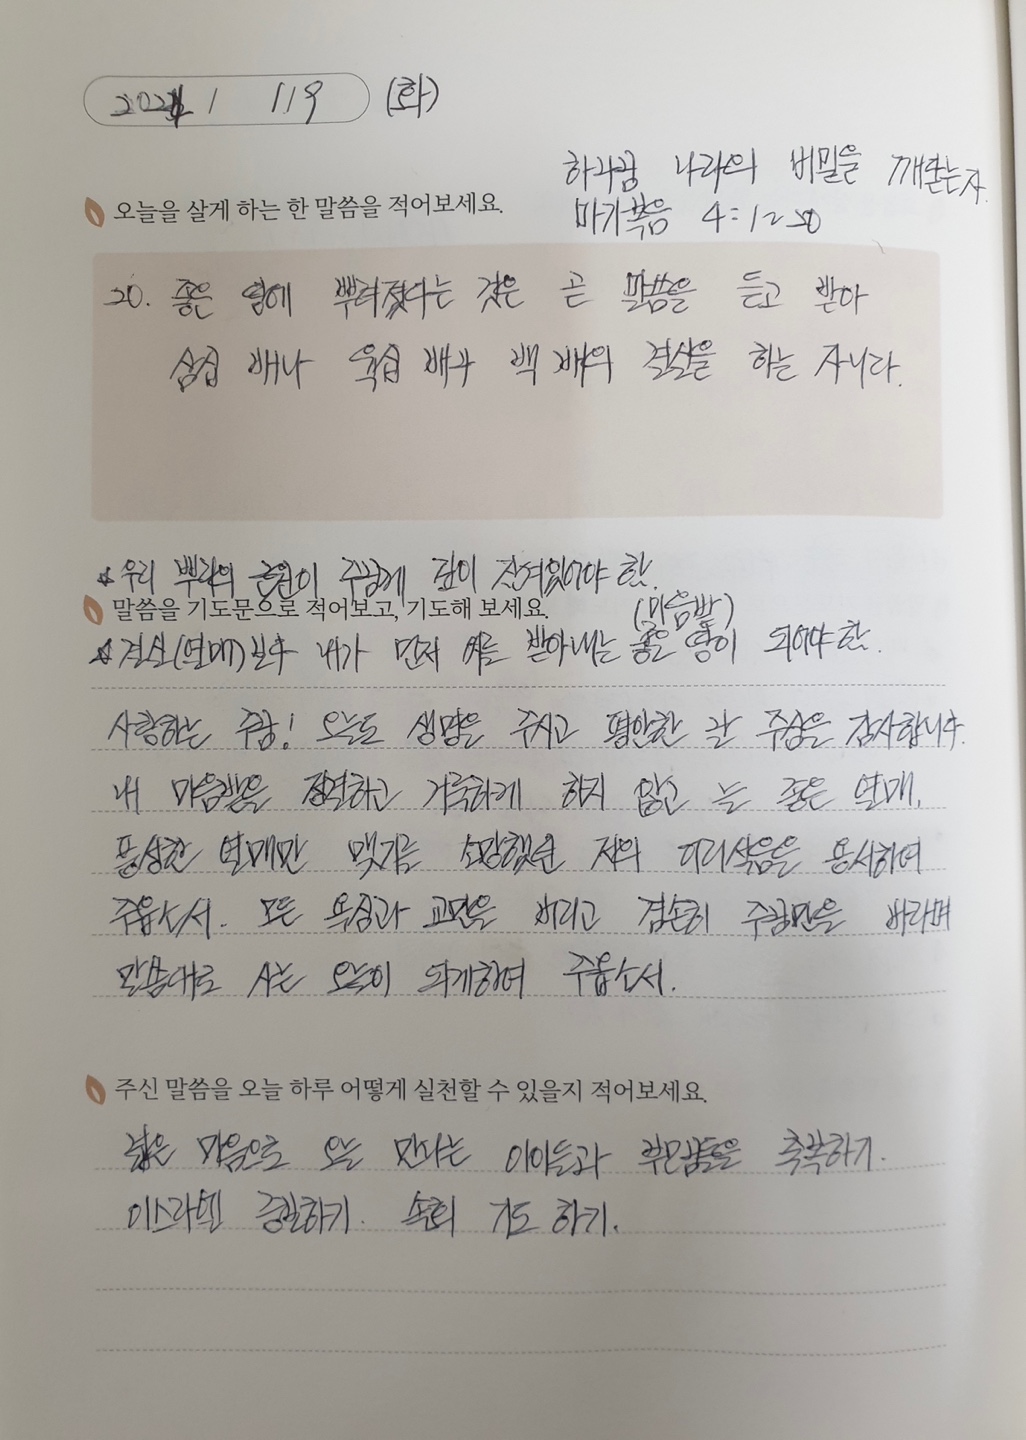 2021 1/19 (화)
하나님 나라의 비밀을 깨닫는 자.
오늘을 살게 하는 한 말씀을 적어보세요.
마가복음 4:1~20
20. 좋은 땅에 뿌려졌다는 것은 곧 말씀을 듣고 받아
삼십 배나 육십 배나 백 배의 결실을 하는 자니라.
☆우리 뿌리의 근원이 주님께 깊이 잠겨있어야 함.
말씀을 기도문으로 적어보고, 기도해 보세요.
(마음밭)
☆결실(열매)보다 내가 먼저 받아내는 좋은 땅이 되어야 함.
사랑하는 주님! 오늘도 생명을 주시고 평안한 주심을 감사합니다.
내 마음밭을 정결하고 거룩하게 하지 않고 좋은 열매,
풍성한 열매만 맺기를 소망했던 저의 어리석음을 용서하여
주옵소서. 모든 욕심과 교만을 버리고 겸손히 주님만을 바라며
말씀대로 사는 오늘이 되게하여 주옵소서.
주신 말씀을 오늘 하루 어떻게 실천할 수 있을지 적어보세요.
마음으로 오늘 만나는 아이들과 부모님들을 축복하기.
이스라엘 하기. 속회 기도 하기.